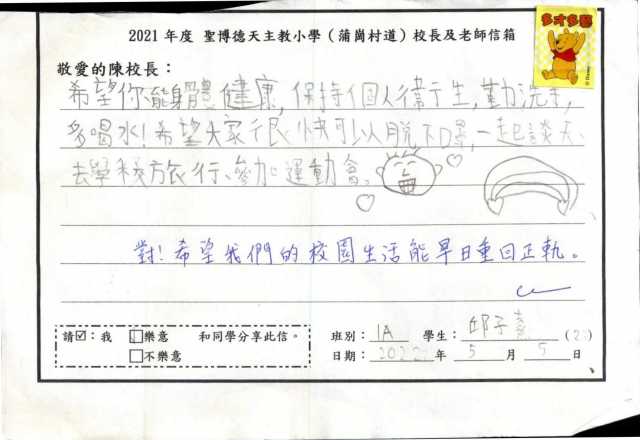 多才多藝
2021 年度 聖博德天主教小學（蒲崗村道）校長及老師信箱
敬愛的陳校長：
希望你能身體健康，保持個人衛生，勤洗手，
多喝水！希望大家很快可以脫下口罩，一起談天、
去學校旅行、參加運動會。
對！希望我們的校園生活能早日重回正軌。
請☑：我 □樂意 和同學分享此信。
□不樂意
班別：1A 學生：邱子
日期：2022 年 5 月 5 日